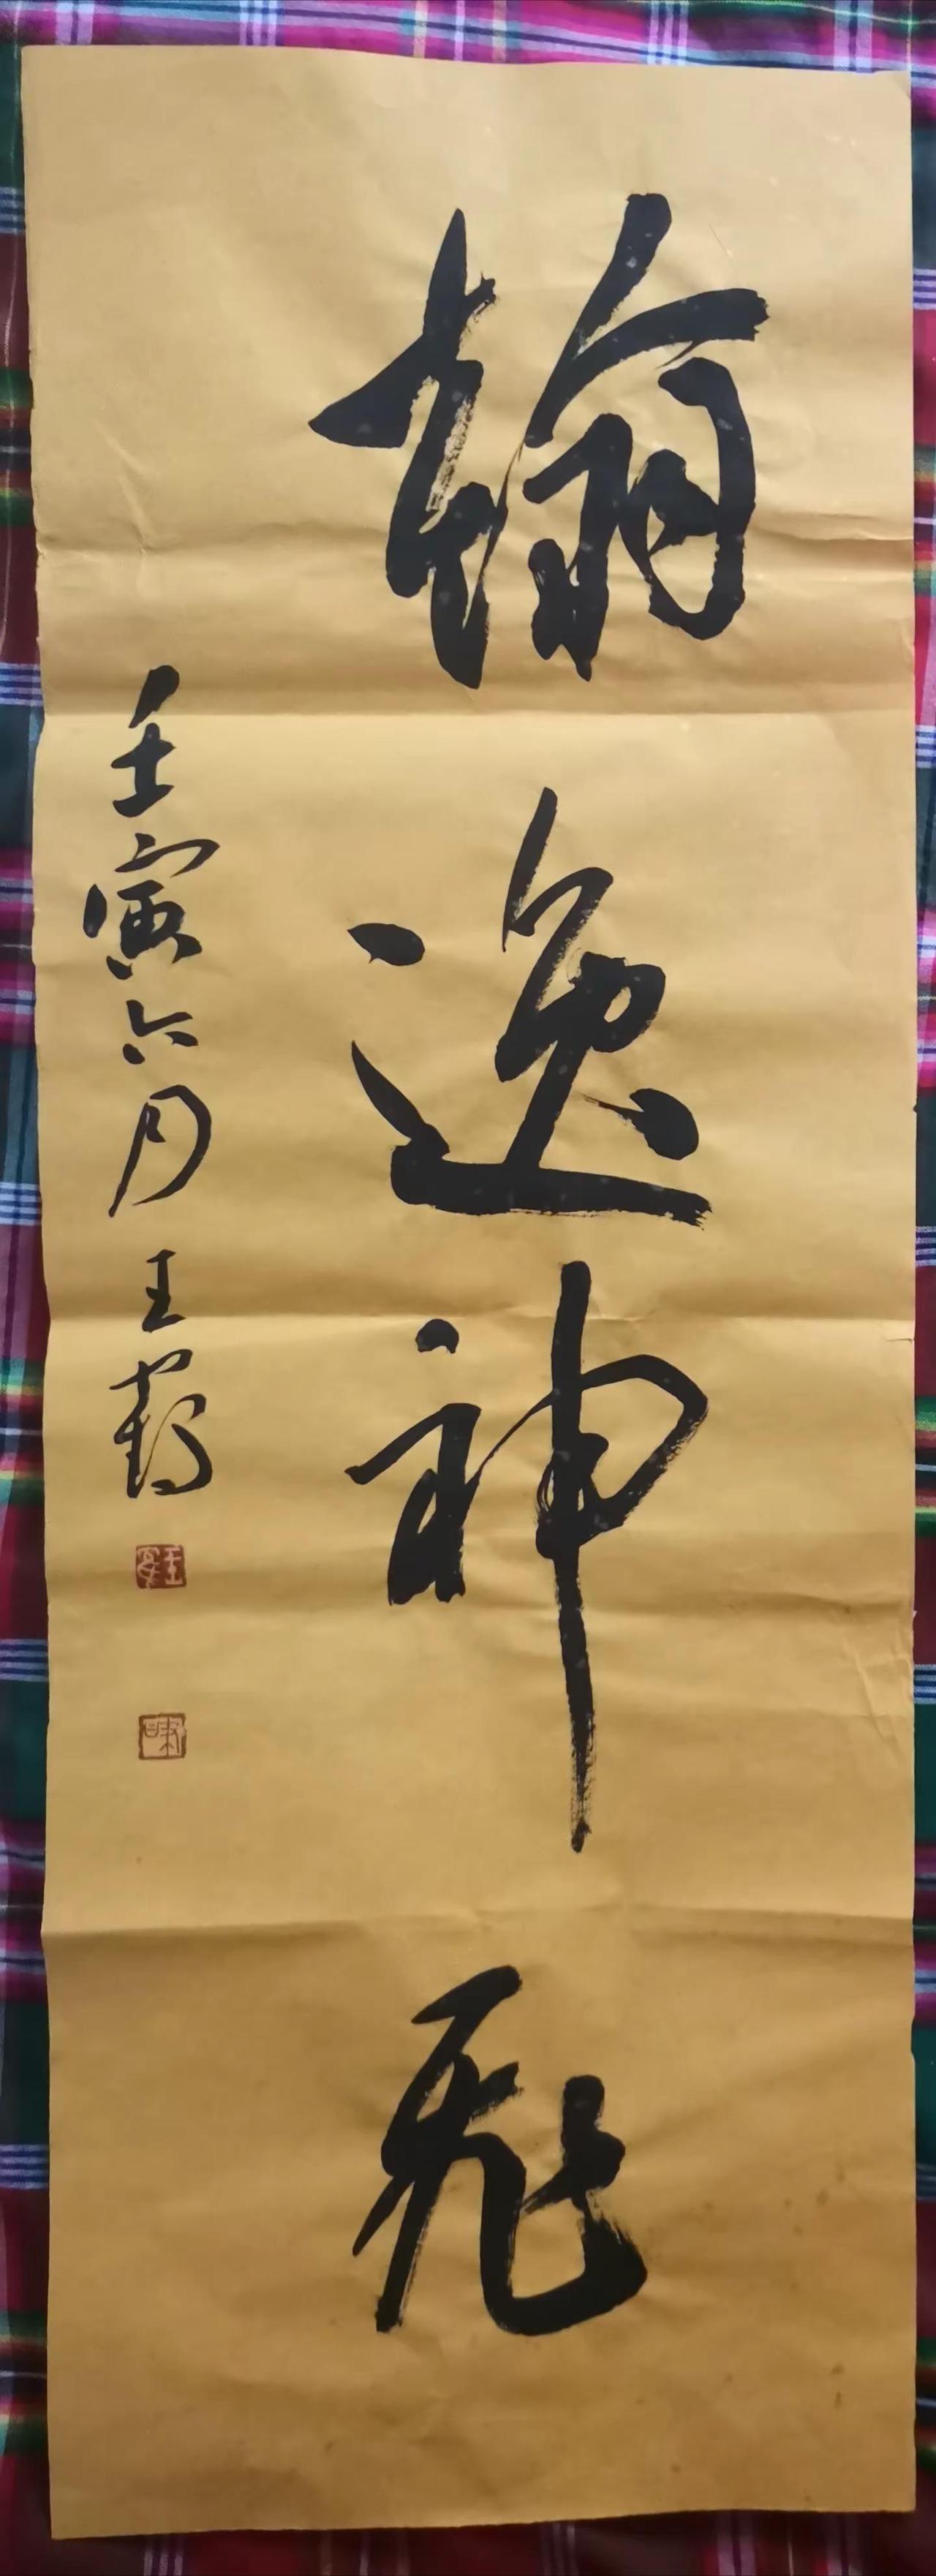 翰逸神飛
壬寅六月 王